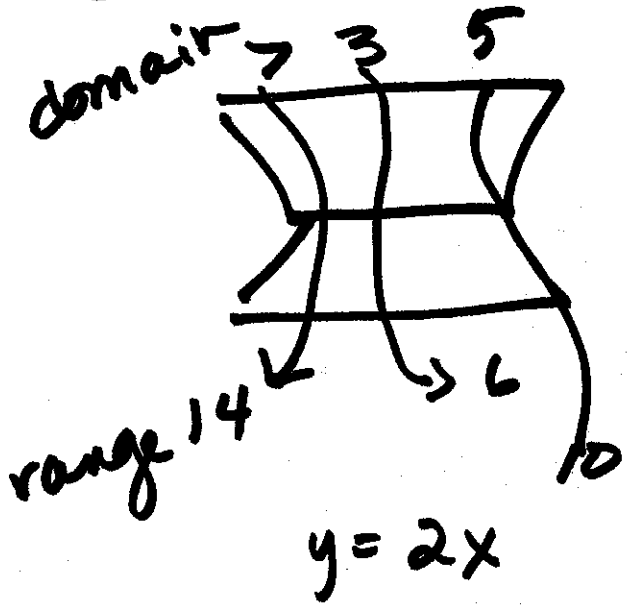 domain 7 3 5
range 14 6 10
y = 2x